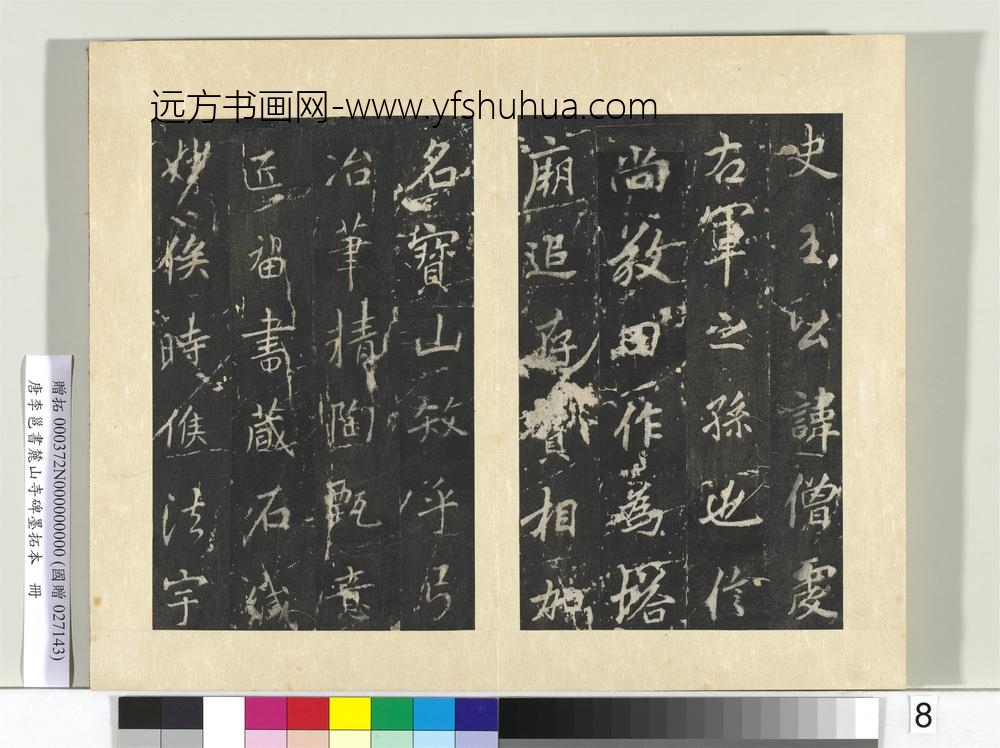 远方书画网-www.yfshuhua.com
史王公諱僧虔
右軍之孫也信
尚敬田作為塔
廟追存寶相加
名寶山矣乎乃
冶筆精陶甄意
匠福畫藏石緘
妙俟時候法宇
贈拓 000372N000000000 (國贈 027143)
唐李邕書麓山寺碑墨拓本 冊
8